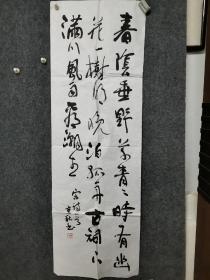 春陰垂野草青〻時有幽
花一樹明晚泊孤舟古祠下
滿川風雨看潮生
宋詩一首